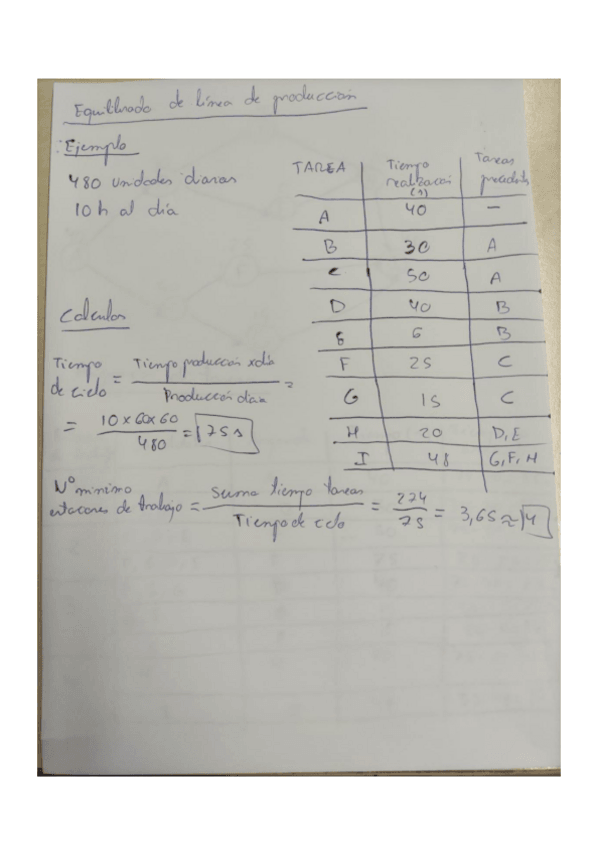 Equilibrado de línea de producción
Ejemplo
480 unidades diarias
10 h al día
TAREA | Tiempo realización (s) | Tareas precedentes
A | 40 | —
B | 30 | A
C | 50 | A
D | 40 | B
E | 6 | B
F | 25 | C
G | 15 | C
H | 20 | D, E
I | 48 | G, F, H
Calculos
Tiempo de ciclo = Tiempo producción x día / Producción diaria =
= 10 x 60 x 60 / 480 = 75 s
Nº minimo estaciones de trabajo = Suma tiempo tareas / Tiempo de ciclo = 274 / 75 = 3,65 ≈ 4